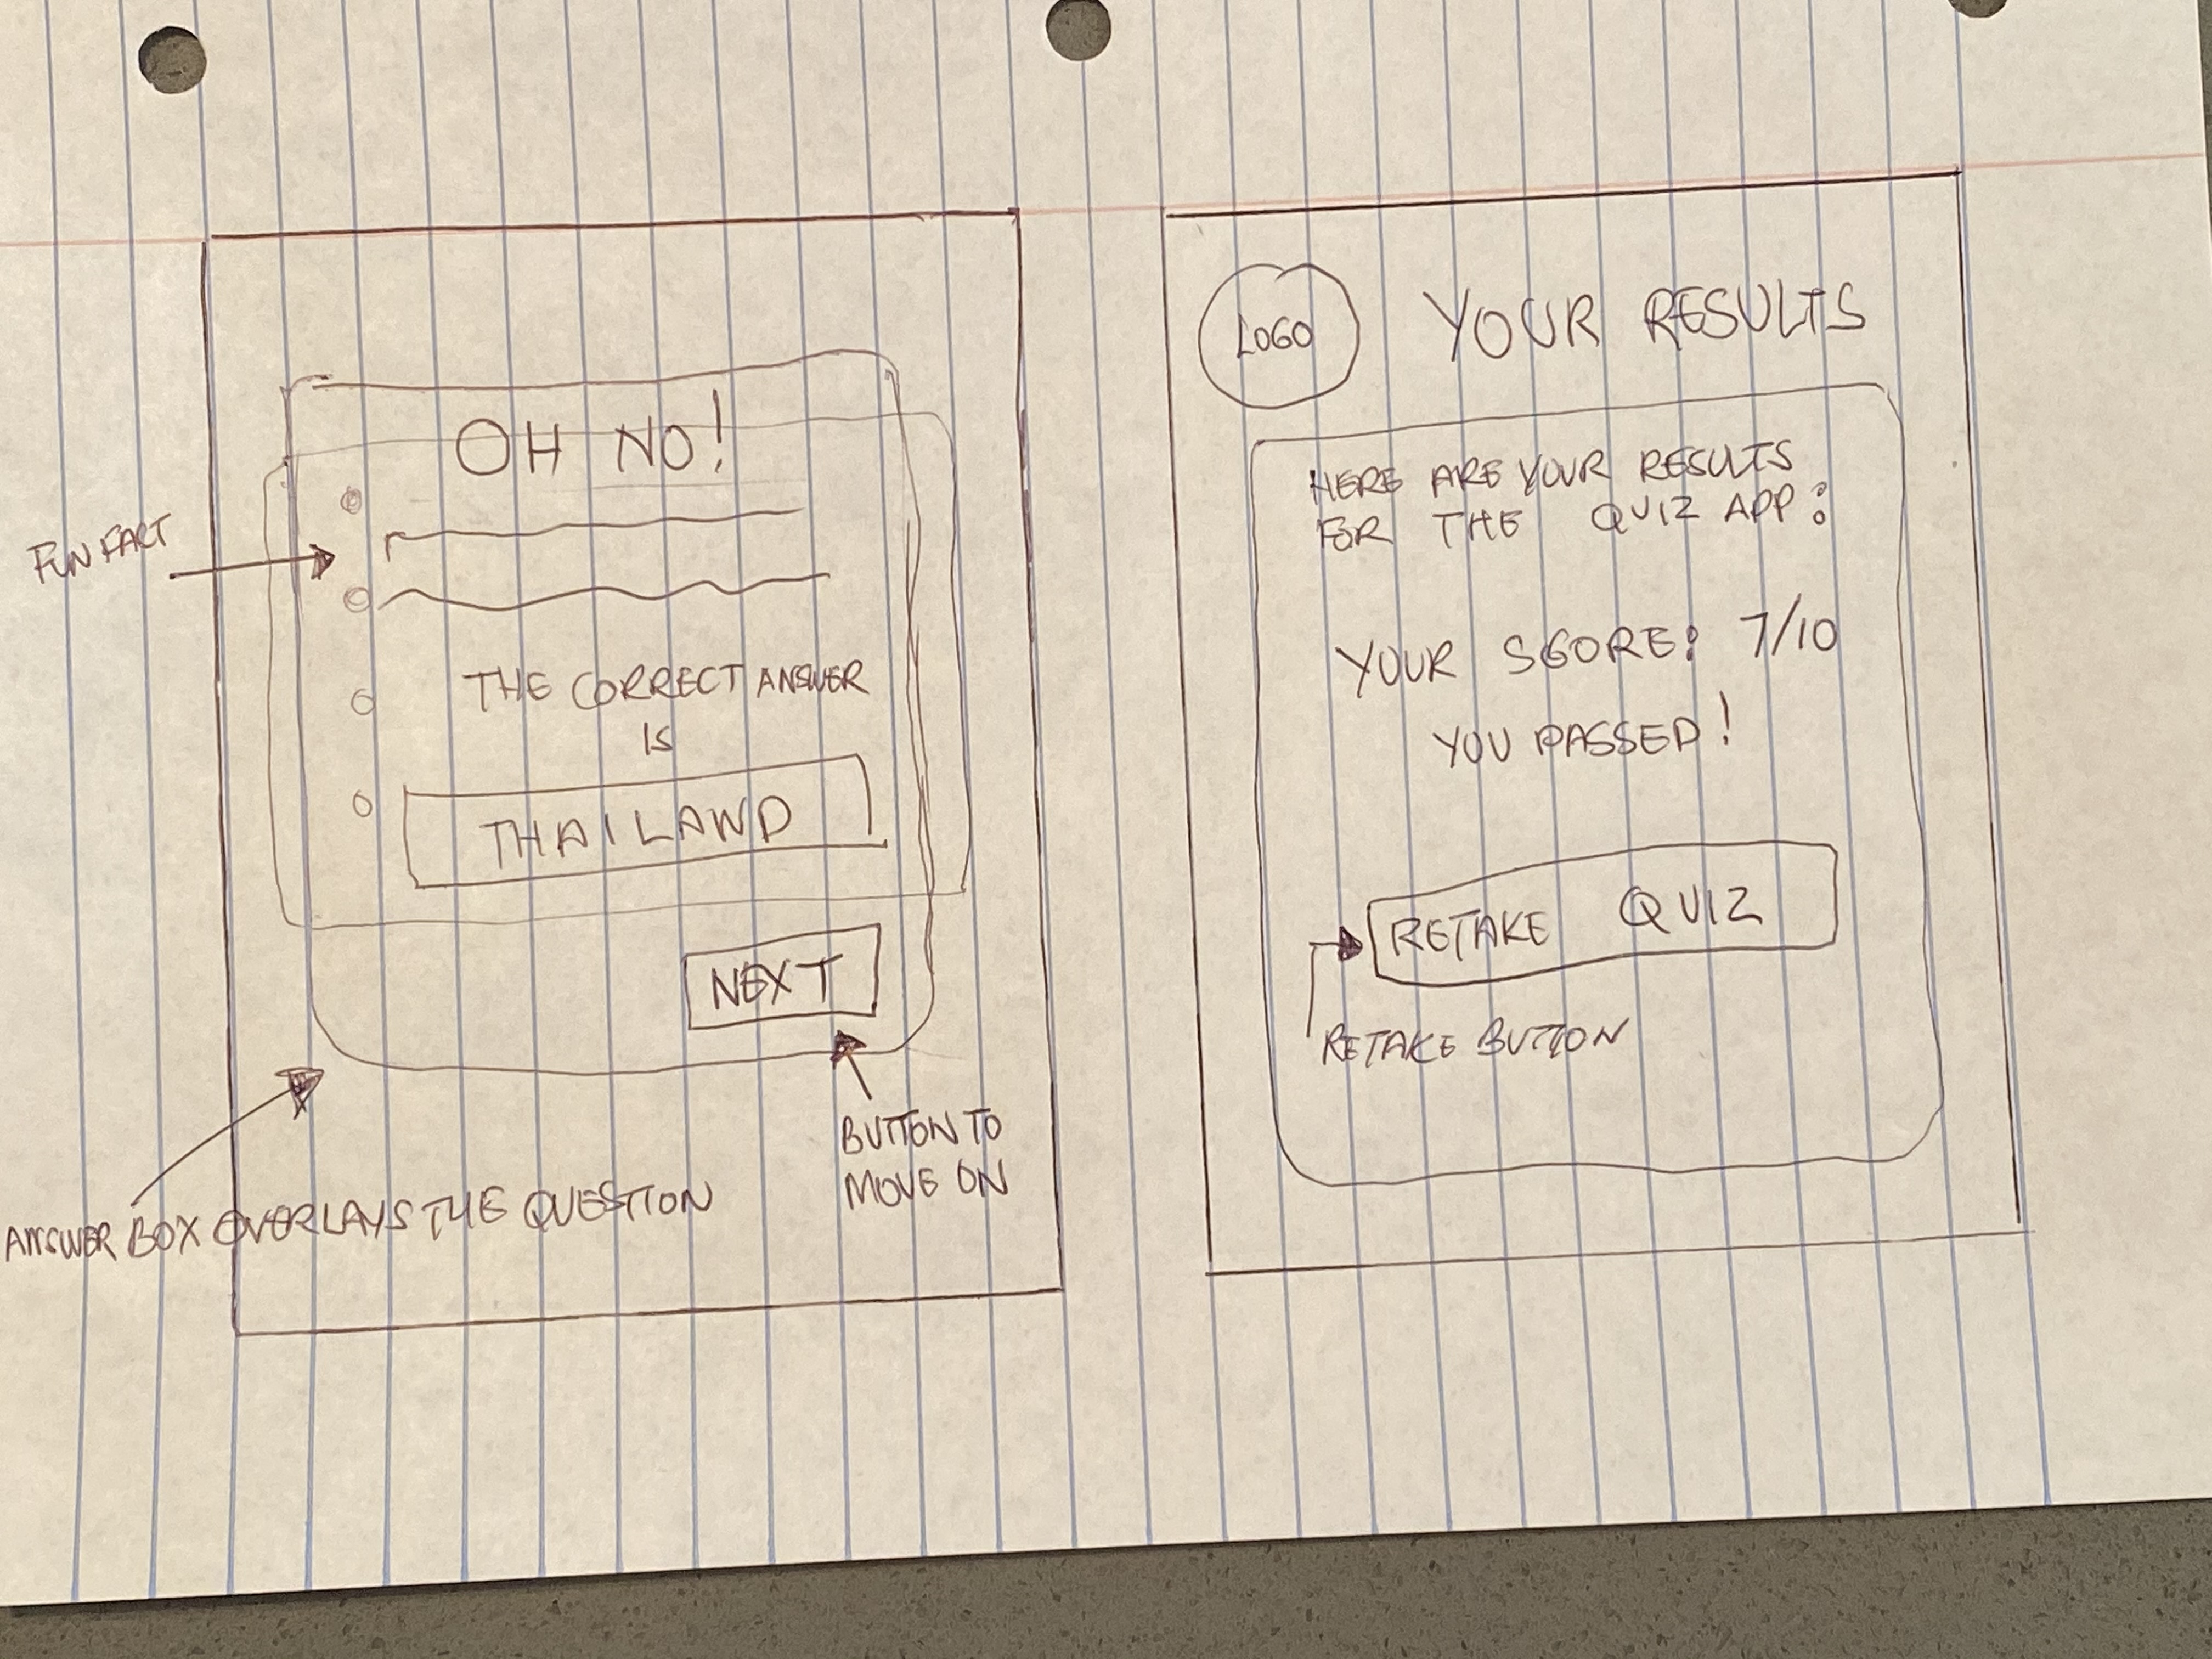 OH NO!
FUN FACT
THE CORRECT ANSWER
IS
THAILAND
NEXT
BUTTON TO
MOVE ON
ANSWER BOX OVERLAYS THE QUESTION
LOGO
YOUR RESULTS
HERE ARE YOUR RESULTS
FOR THE QUIZ APP:
YOUR SCORE: 7/10
YOU PASSED!
RETAKE QUIZ
RETAKE BUTTON